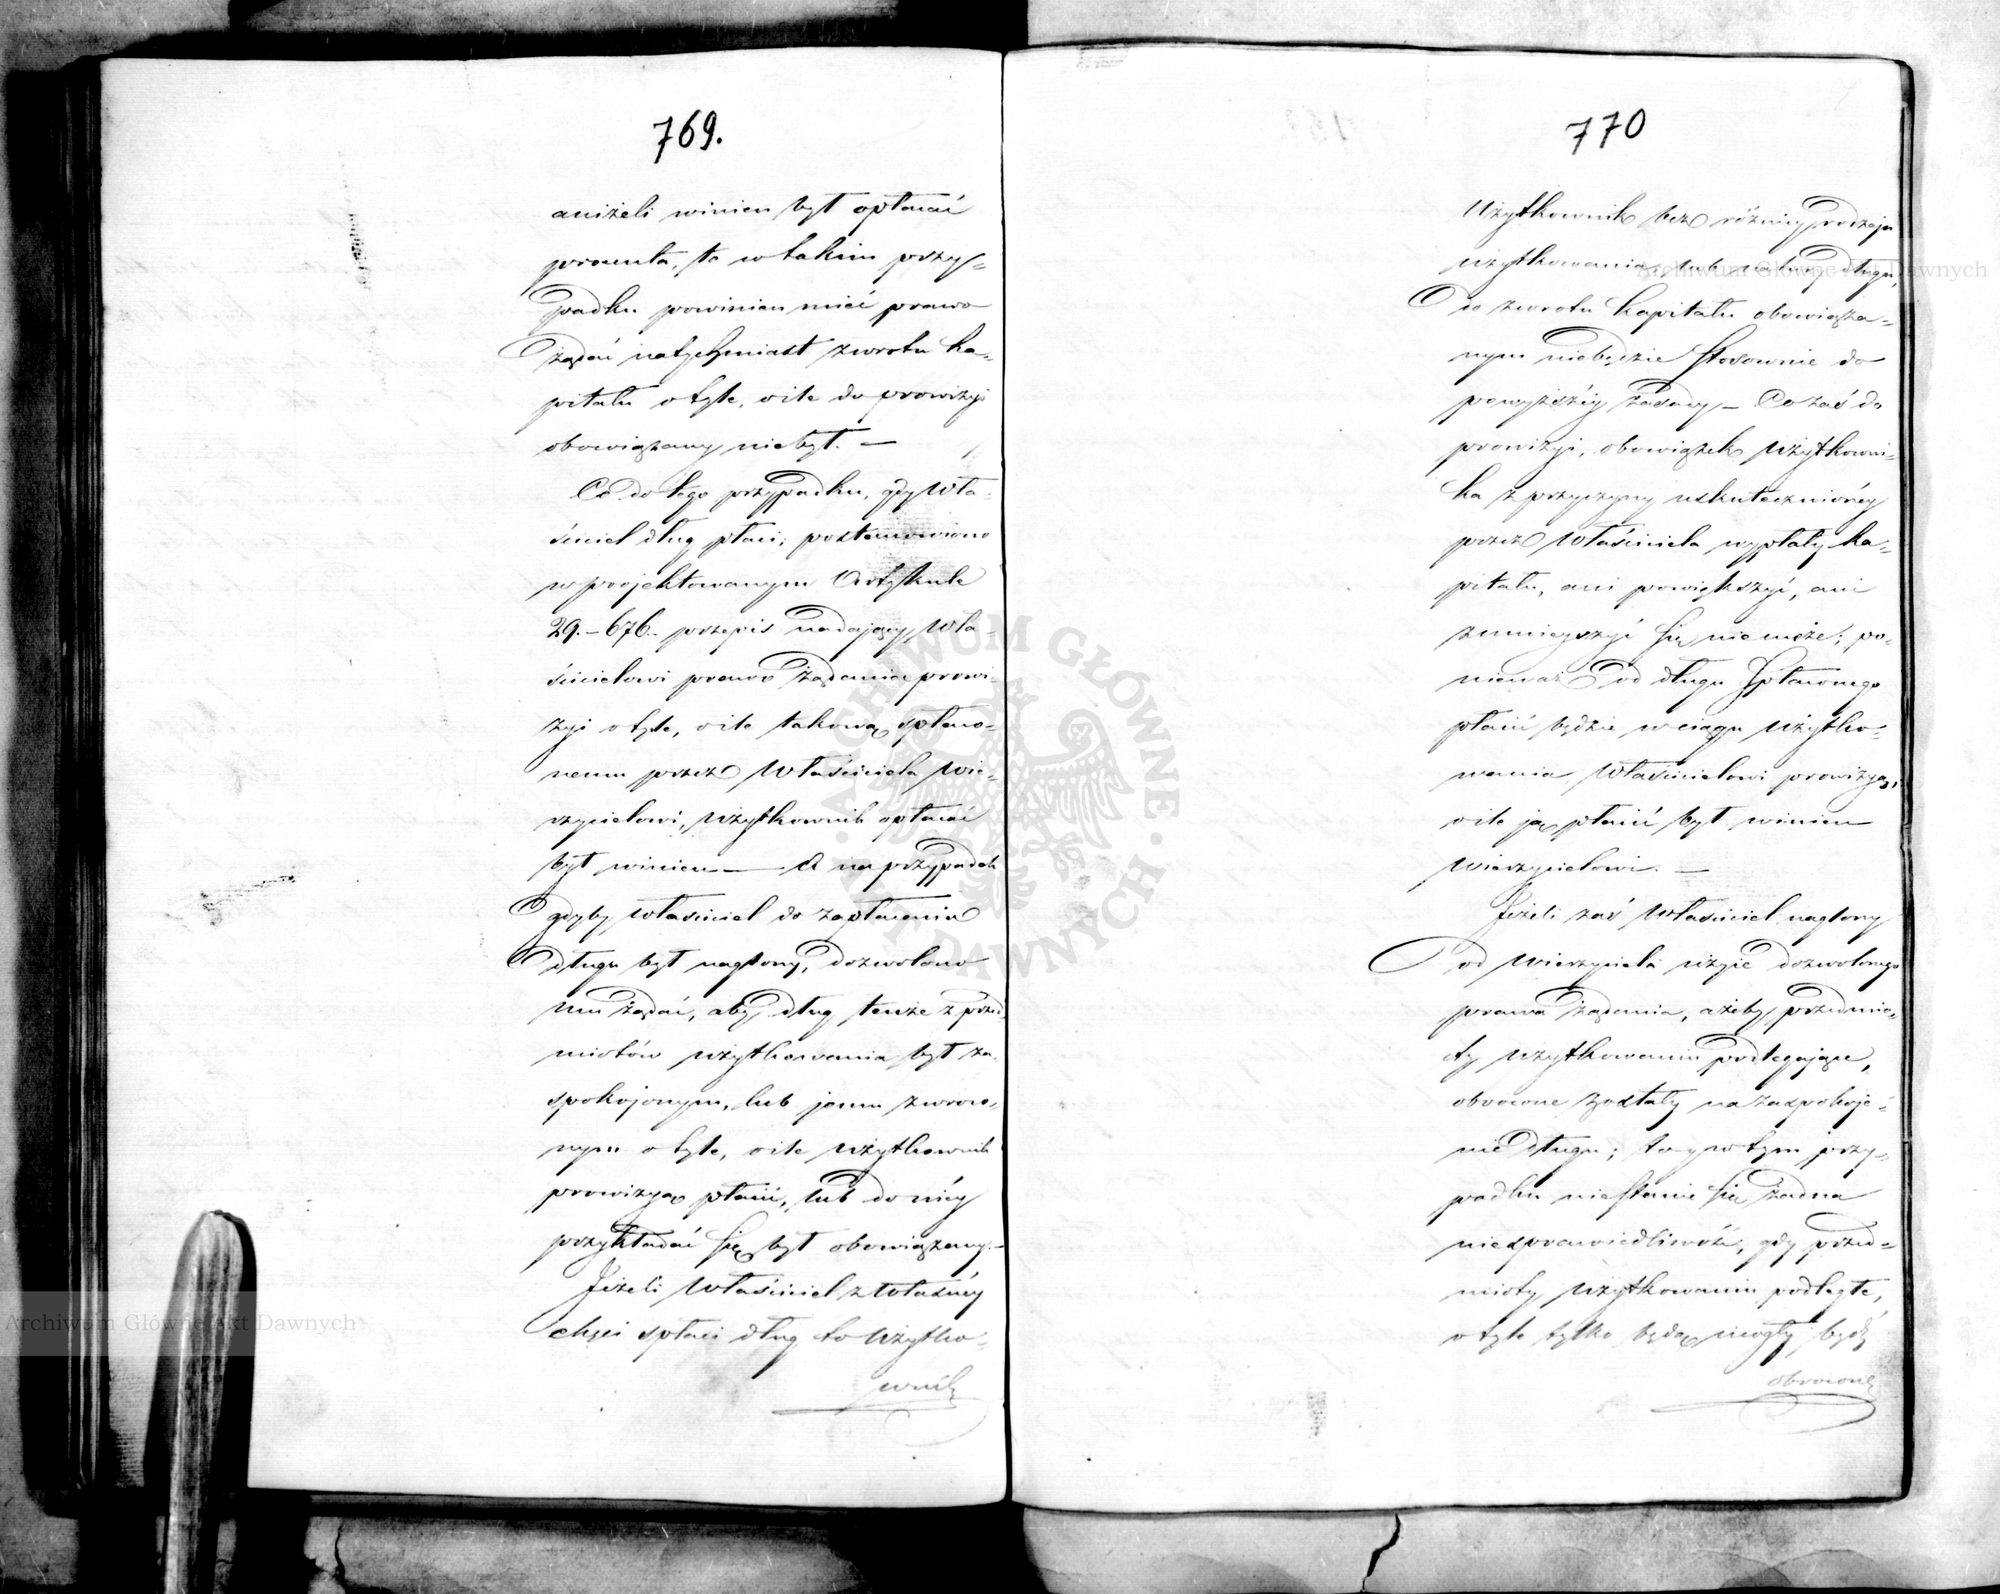 769.
aniżeli winien był opłacać
procenta, to w takim przy-
padku powinien mieć prawo
żądać natychmiast zwrotu ka-
pitału o tyle, o ile do prowizyi
obowiązany niebył. —
Co do tego przypadku, gdy Wła-
ściciel dług płaci; postanowiono
w projektowanym Artykule
29.-676. przepis nadający Wła-
ścicielowi prawo żądania prowi-
zyi o tyle, o ile takową spłaco-
nemu przez Właściciela Wie-
rzycielowi, Użytkownik opłacać
był winien — A na przypadek
gdyby Właściciel do zapłacenia
długu był naglony, dozwolono
mu żądać, aby dług tenże z przed-
miotów użytkowania był za-
spokojonym, lub jemu zwróco-
nym o tyle, o ile Użytkownik
prowizyą płacić, lub do niéy
przykładać się był obowiązany.—
Jeżeli Właściciel z własnéy
chęci spłaci dług to Użytko-
wnik
770
Użytkownik bez różnicy rodzaju
użytkowania, lub natury długu,
do zwrotu Kapitału obowiąza-
nym niebędzie stosownie do
powyższéy zasady — Co zaś do
prowizyi, obowiązek Użytkowni-
ka z przyczyny uskutecznionéy
przez Właściciela wypłaty ka-
pitału, ani powiększyć, ani
zmnieyszyć się nie może; po-
nieważ od długu spłaconego
płacić będzie w ciągu Użytko-
wania Właścicielowi prowizyą,
o ile ją płacić był winien
Wierzycielowi. —
Jeżeli zaś Właściciel naglony
od Wierzyciela użyie dozwolonego
prawa żądania, ażeby przedmio-
ty użytkowaniu podlegające,
obrócone zostały na zaspokoje-
nie długu; to y w tym przy-
padku niestanie się żadna
niesprawiedliwość, gdy przed-
mioty Użytkowaniu podległe,
o tyle tylko będą mogły bydź
obrócone
Archiwum Główne Akt Dawnych
Archiwum Główne Akt Dawnych
ARCHIWUM GŁÓWNE · AKT DAWNYCH ·